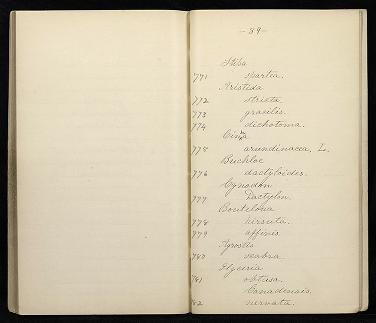 -89-
Stiba
771 spartea.
Aristida
772 stricta.
773 gracilis.
774 dichotoma.
Cinna
775 arundinacea, L.
Buchloe
776 dactyloides.
Cynodon
777 Dactylon.
Bouteloua
778 hirsuta.
779 affinis
Agrostis
780 scabra.
Glyceria
781 obtusa.
Canadensis.
82 nervata.